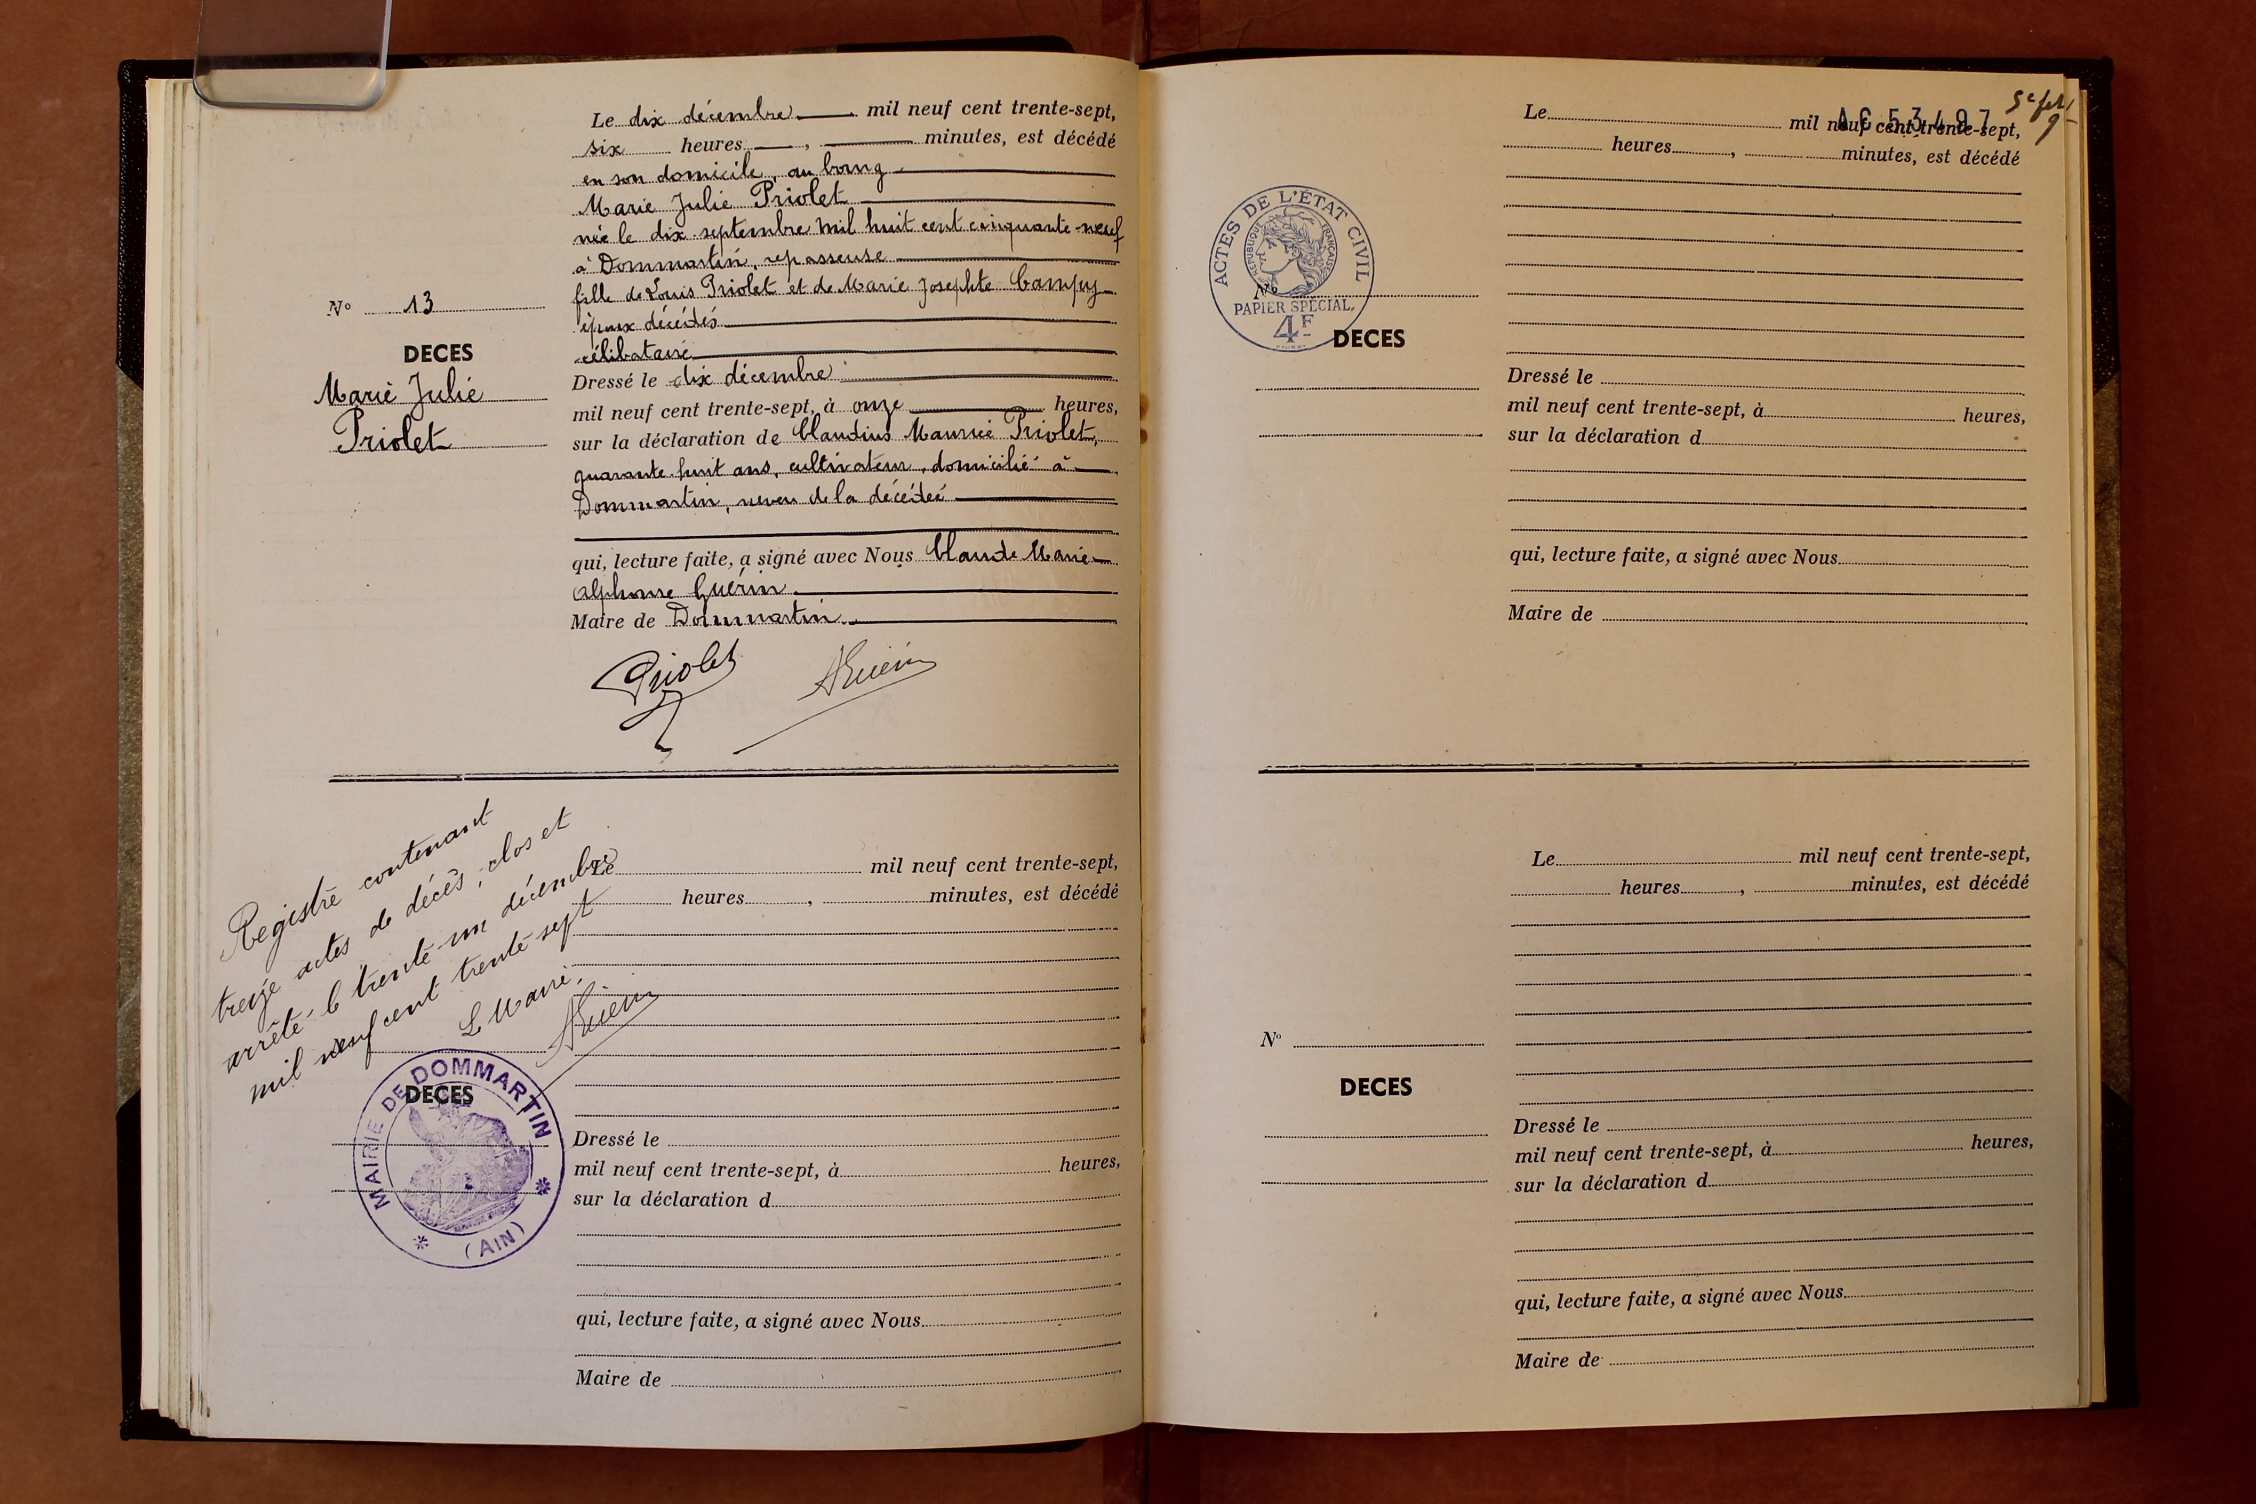 Le dix décembre mil neuf cent trente-sept,
six heures , minutes, est décédé
en son domicile, au bourg
Marie Julie Priolet
née le dix septembre mil huit cent cinquante-neuf
à Dommartin, repasseuse
fille de Louis Priolet et de Marie Josephte Campuy
époux décédés
célibataire
No 13
DECES
Marie Julie
Priolet
Dressé le dix décembre
mil neuf cent trente-sept, à onze heures,
sur la déclaration de Claudius Maurice Priolet,
quarante-huit ans, cultivateur, domicilié à
Dommartin, neveu de la décédée
qui, lecture faite, a signé avec Nous Claude Marie
Alphonse Guérin
Maire de Dommartin
Priolet
AGuérin
Registre contenant
treize actes de décès, clos et
arrêté le trente-un décembre
mil neuf cent trente sept
Le Maire,
AGuérin
Le mil neuf cent trente-sept,
heures , minutes, est décédé
DECES
MAIRIE DE DOMMARTIN
(AIN)
Dressé le
mil neuf cent trente-sept, à heures,
sur la déclaration d
qui, lecture faite, a signé avec Nous
Maire de
5e fet
9
AC 53.497
Le mil neuf cent trente-sept,
heures , minutes, est décédé
ACTES DE L'ÉTAT CIVIL
RÉPUBLIQUE FRANÇAISE
No
PAPIER SPÉCIAL
4F
DECES
Dressé le
mil neuf cent trente-sept, à heures,
sur la déclaration d
qui, lecture faite, a signé avec Nous
Maire de
Le mil neuf cent trente-sept,
heures , minutes, est décédé
No
DECES
Dressé le
mil neuf cent trente-sept, à heures,
sur la déclaration d
qui, lecture faite, a signé avec Nous
Maire de